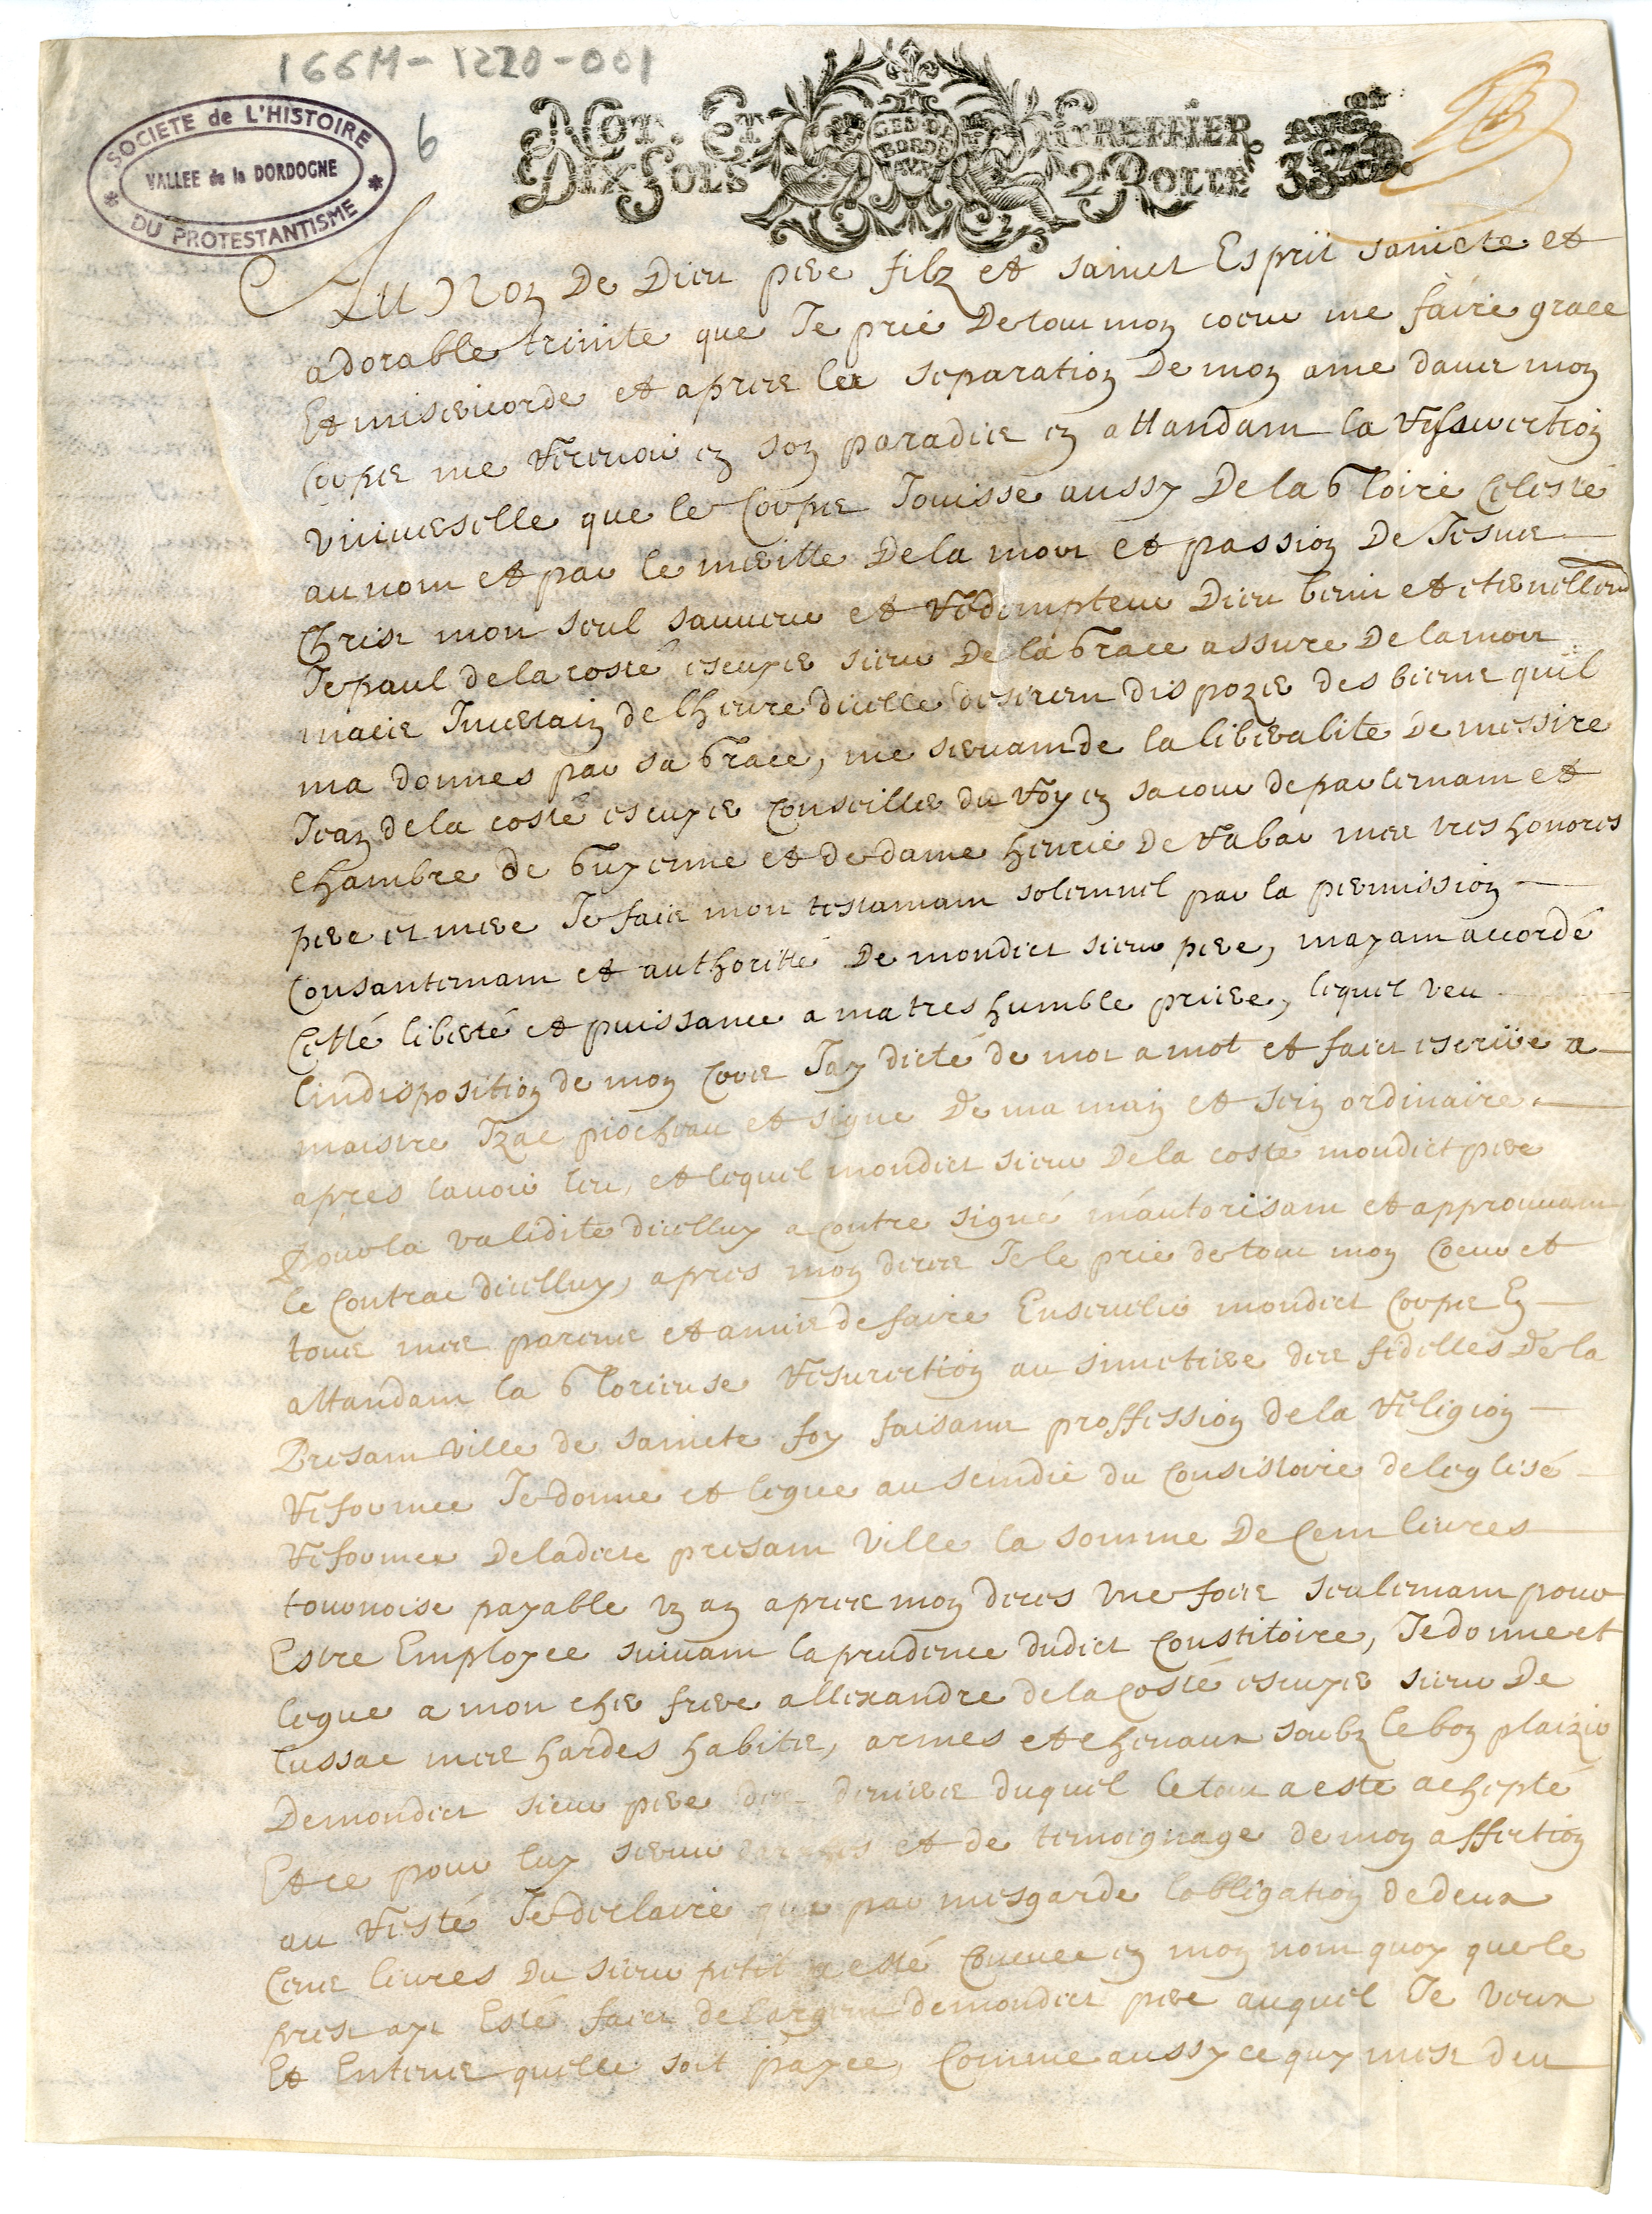 166M-1220-001
6
SOCIETE de L'HISTOIRE
VALLEE de la DORDOGNE
DU PROTESTANTISME
NOT. ET GREFFIER
GEN. DE BORD
DIX SOLS 2 ROLLE
Au Nom De Dieu pere filz et sainct Esprit saincte et
adorable trinite que Je prie De tout mon coeur me faire grace
Et misericorde et apres la separation De mon ame dauec mon
Corps me recevoir en son paradis en attandant la resurrection
Vniuerselle que le Corps Jouisse aussy De la Gloire Celeste
au nom et par le meritte De la mort et passion De Jesus
Christ mon seul sauueur et redempteur Dieu benit et eternellemt
Je paul de la coste escuyer sieur De la Grace assure De la mort
mais Incertain de lheure dicelle desirant dispozer des biens quil
ma donnes par sa Grace, me seruant de la liberalite De messire
Jean de la coste escuyer Conseiller du roy en sa cour de parlemant et
chambre de Guyenne et de dame henrie De rabar mes tres honores
pere et mere Je fais mon testamant solemnel par la permission
Consantemant et authoritté De mondict sieur pere, mayant accordé
Cette liberté et puissance a ma tres humble priere, lequel veu
lindisposition de mon Corps Jay dicté de mot a mot et faict escriire a
maistre Izac piocheau et signe De ma main et sein ordinaire
apres lauoir leu, et lequel mondict sieur De la coste mondict pere
Pour la validite dicelluy a contre signé mautorisant et approuuant
le Contrac dicelluy, apres mon deces Je le prie de tout mon Coeur et
tous mes parens et amis de faire Enseuelir mondict Corps En
attandant la Glorieuse resurection au simetiere des fidelles De la
Presant ville de saincte foy faisant proffession de la religion
reformee Je donne et legue au scindic du Consistoire de leglise
reformee De ladicte presant Ville la somme De Cent liures
tournoise payable vn an apres mon deces vne fois seulemant pour
Estre Employee suiuant la prudence dudict Constitoire, Je donne et
legue a mon cher frere allexandre de la Coste escuyer sieur De
lussac mes hardes habits, armes et cheuaux soubz le bon plaizir
De mondict sieur pere des deniers duquel le tout a este achepté
Et ce pour luy seruir et de temoignage de mon affection
au resté Je declaire que par mesgarde lobligation de deux
Cens liures Du sieur petit a esté Concue en mon nom quoy que le
prest ayt Esté faict de largent de mondict pere auquel Je veux
Et Entens quelle soit payee, Comme aussy ce quy mest deu